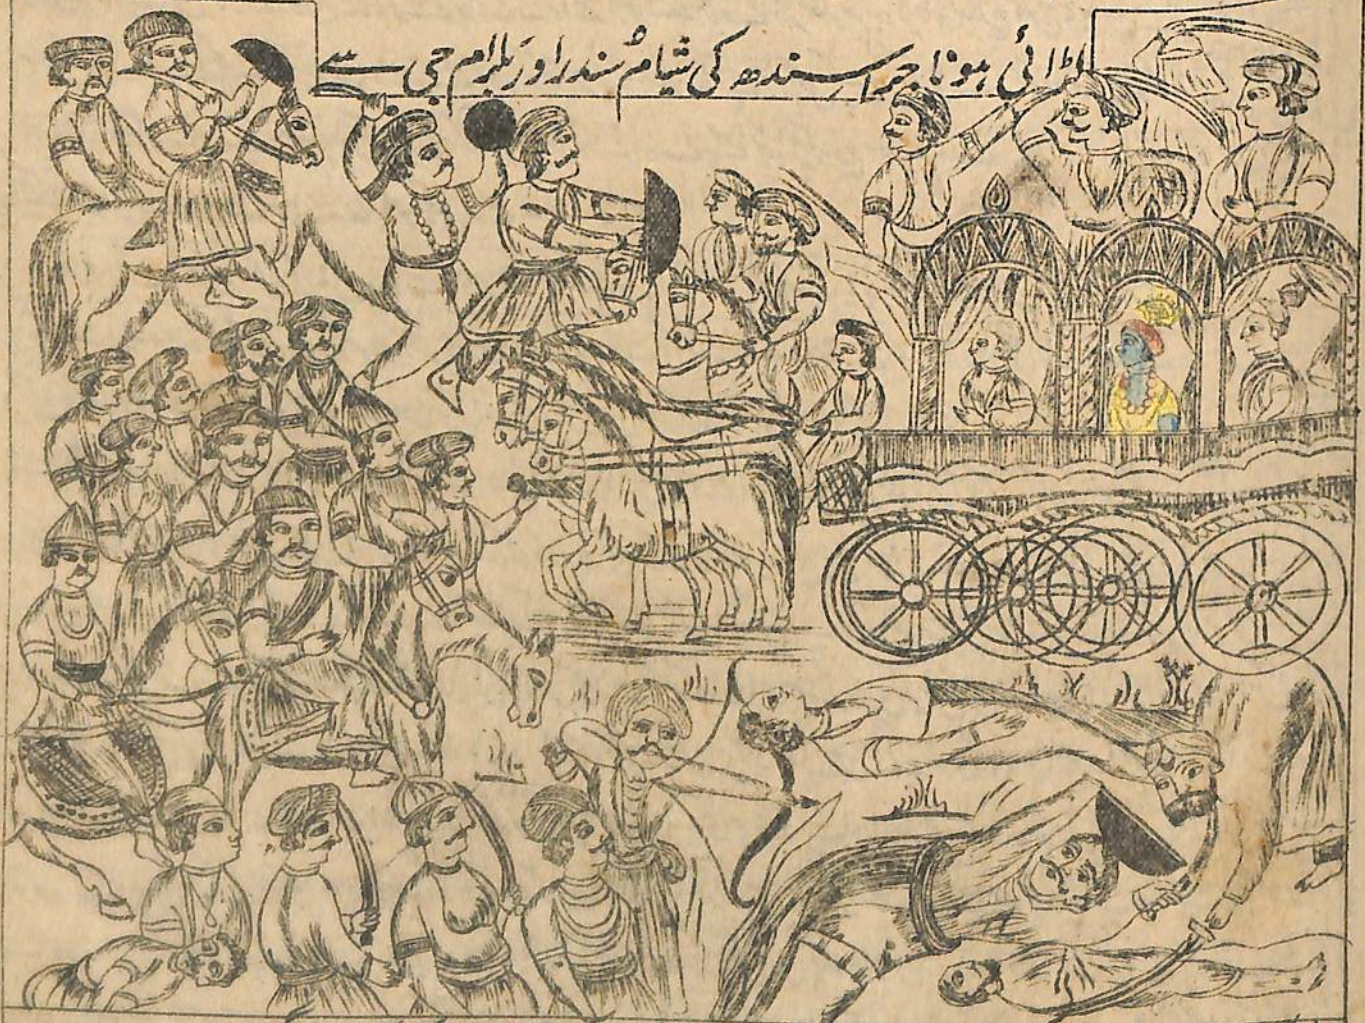 لڑائی ہونا جراسندھ کی شیام سُندر اور بلرام جی سے